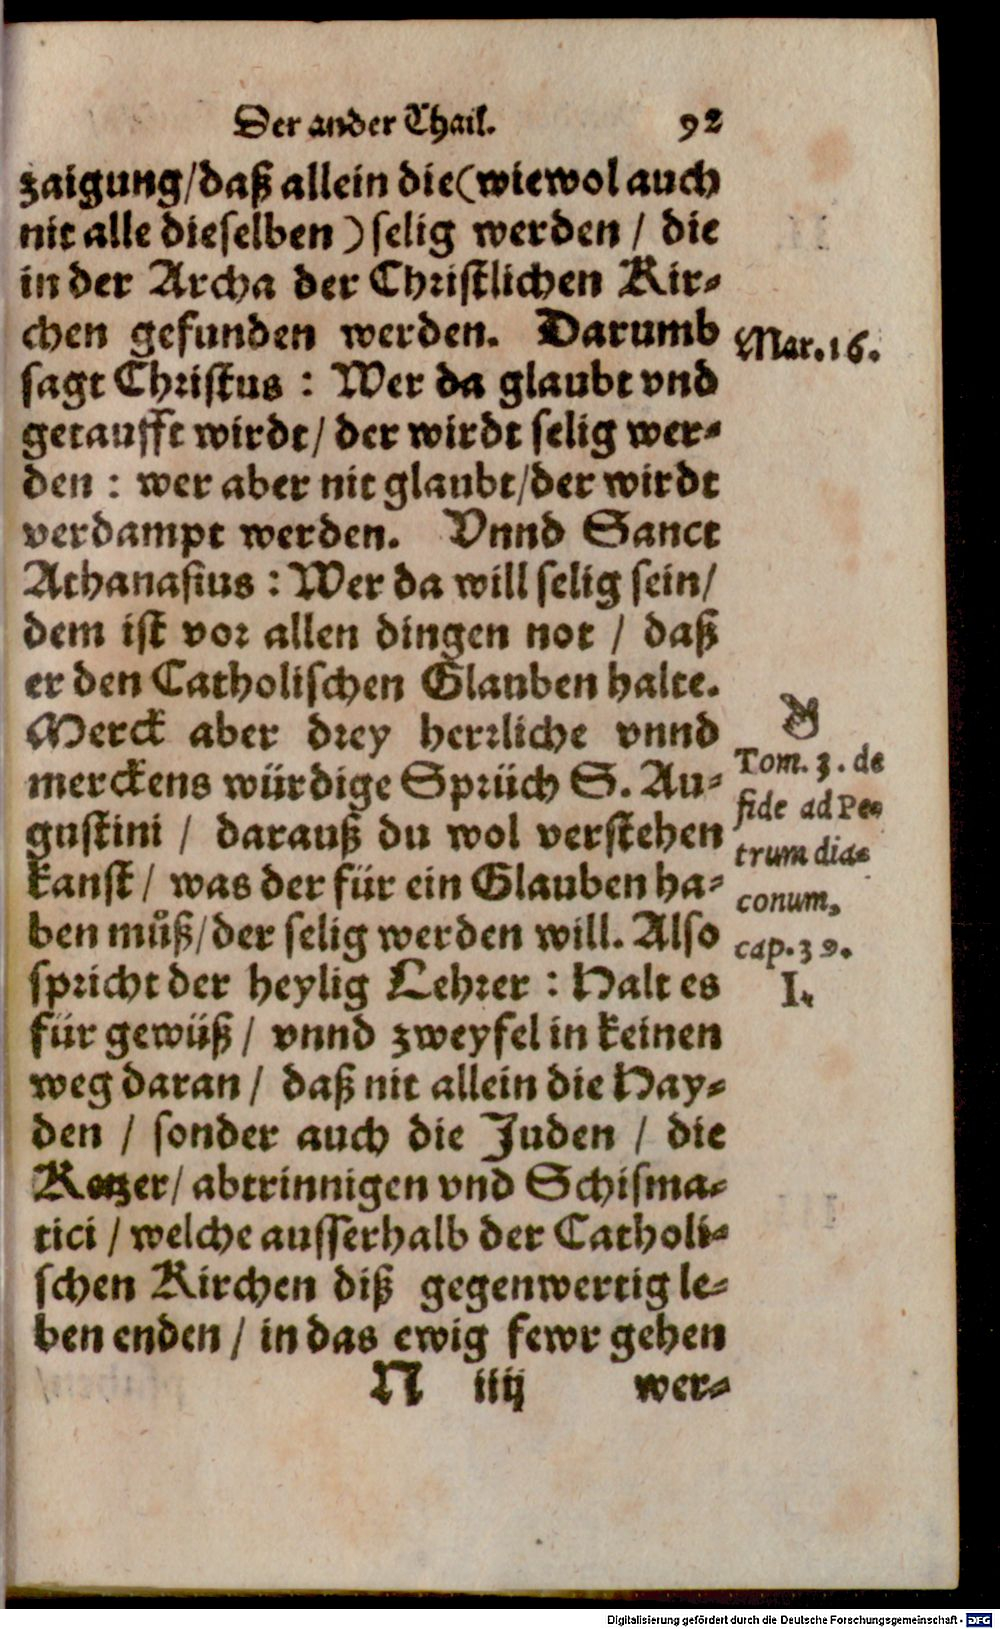 Der ander Thail. 92
zaigung/daß allein die(wiewol auch
nit alle dieselben) selig werden / die
in der Archa der Christlichen Kir-
chen gefunden werden. Darumb
Mar.16.
sagt Christus : Wer da glaubt vnd
getaufft wirdt/ der wirdt selig wer-
den : wer aber nit glaubt/der wirdt
verdampt werden. Vnnd Sanct
Athanasius : Wer da will selig sein/
dem ist vor allen dingen not / daß
er den Catholischen Glauben halte.
Merck aber drey herrliche vnnd
merckens würdige Sprüch S. Au-
gustini / darauß du wol verstehen
kanst/ was der für ein Glauben ha-
ben můß/der selig werden will. Also
Tom. 3. de
fide ad Pe-
trum dia-
conum,
cap.39.
spricht der heylig Lehrer : Halt es
I.
für gewüß/ vnnd zweyfel in keinen
weg daran/ daß nit allein die Hay-
den / sonder auch die Juden / die
Ketzer/ abtrinnigen vnd Schisma-
tici / welche ausserhalb der Catholi-
schen Kirchen diß gegenwertig le-
ben enden / in das ewig fewr gehen
N iiij wer-
Digitalisierung gefördert durch die Deutsche Forschungsgemeinschaft - DFG